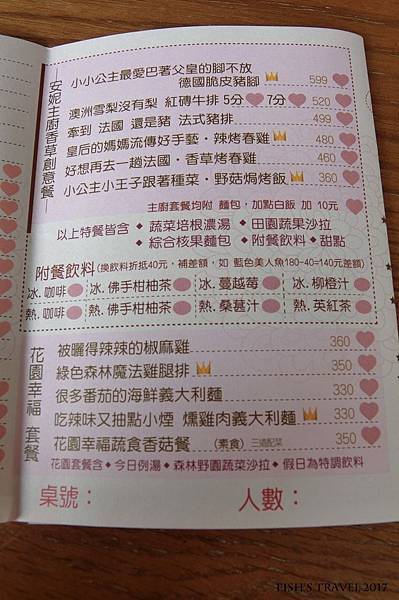 安妮主廚香草創意餐
小小公主最愛巴著父皇的腳不放
德國脆皮豬腳 599
澳洲雪梨沒有梨 紅磚牛排 5分 7分 520
牽到 法國 還是豬 法式豬排 499
皇后的媽媽流傳好手藝・辣烤春雞 480
好想再去一趟法國・香草烤春雞 460
小公主小王子跟著種菜・野菇焗烤飯 360
主廚套餐均附 麵包，加點白飯 加 10元
以上特餐皆含 ◆ 蔬菜培根濃湯 ◆ 田園蔬果沙拉
◆ 綜合核果麵包 ◆ 附餐飲料 ◆ 甜點
附餐飲料 (換飲料折抵40元，補差額，如 藍色美人魚180-40=140元差額)
冰.咖啡 冰.佛手柑柚茶 冰.蔓越莓 冰.柳橙汁
熱.咖啡 熱.佛手柑柚茶 熱.桑葚汁 熱.英紅茶
花園幸福 套餐
被曬得辣辣的椒麻雞 360
綠色森林魔法雞腿排 350
很多番茄的海鮮義大利麵 330
吃辣味又抽點小煙 燻雞肉義大利麵 330
花園幸福蔬食香菇餐 (素食) 三道配菜 350
花園套餐含 ◆ 今日例湯 ◆ 森林野園蔬菜沙拉 ◆ 假日為特調飲料
桌號： 人數：
FISH'S TRAVEL, 2017